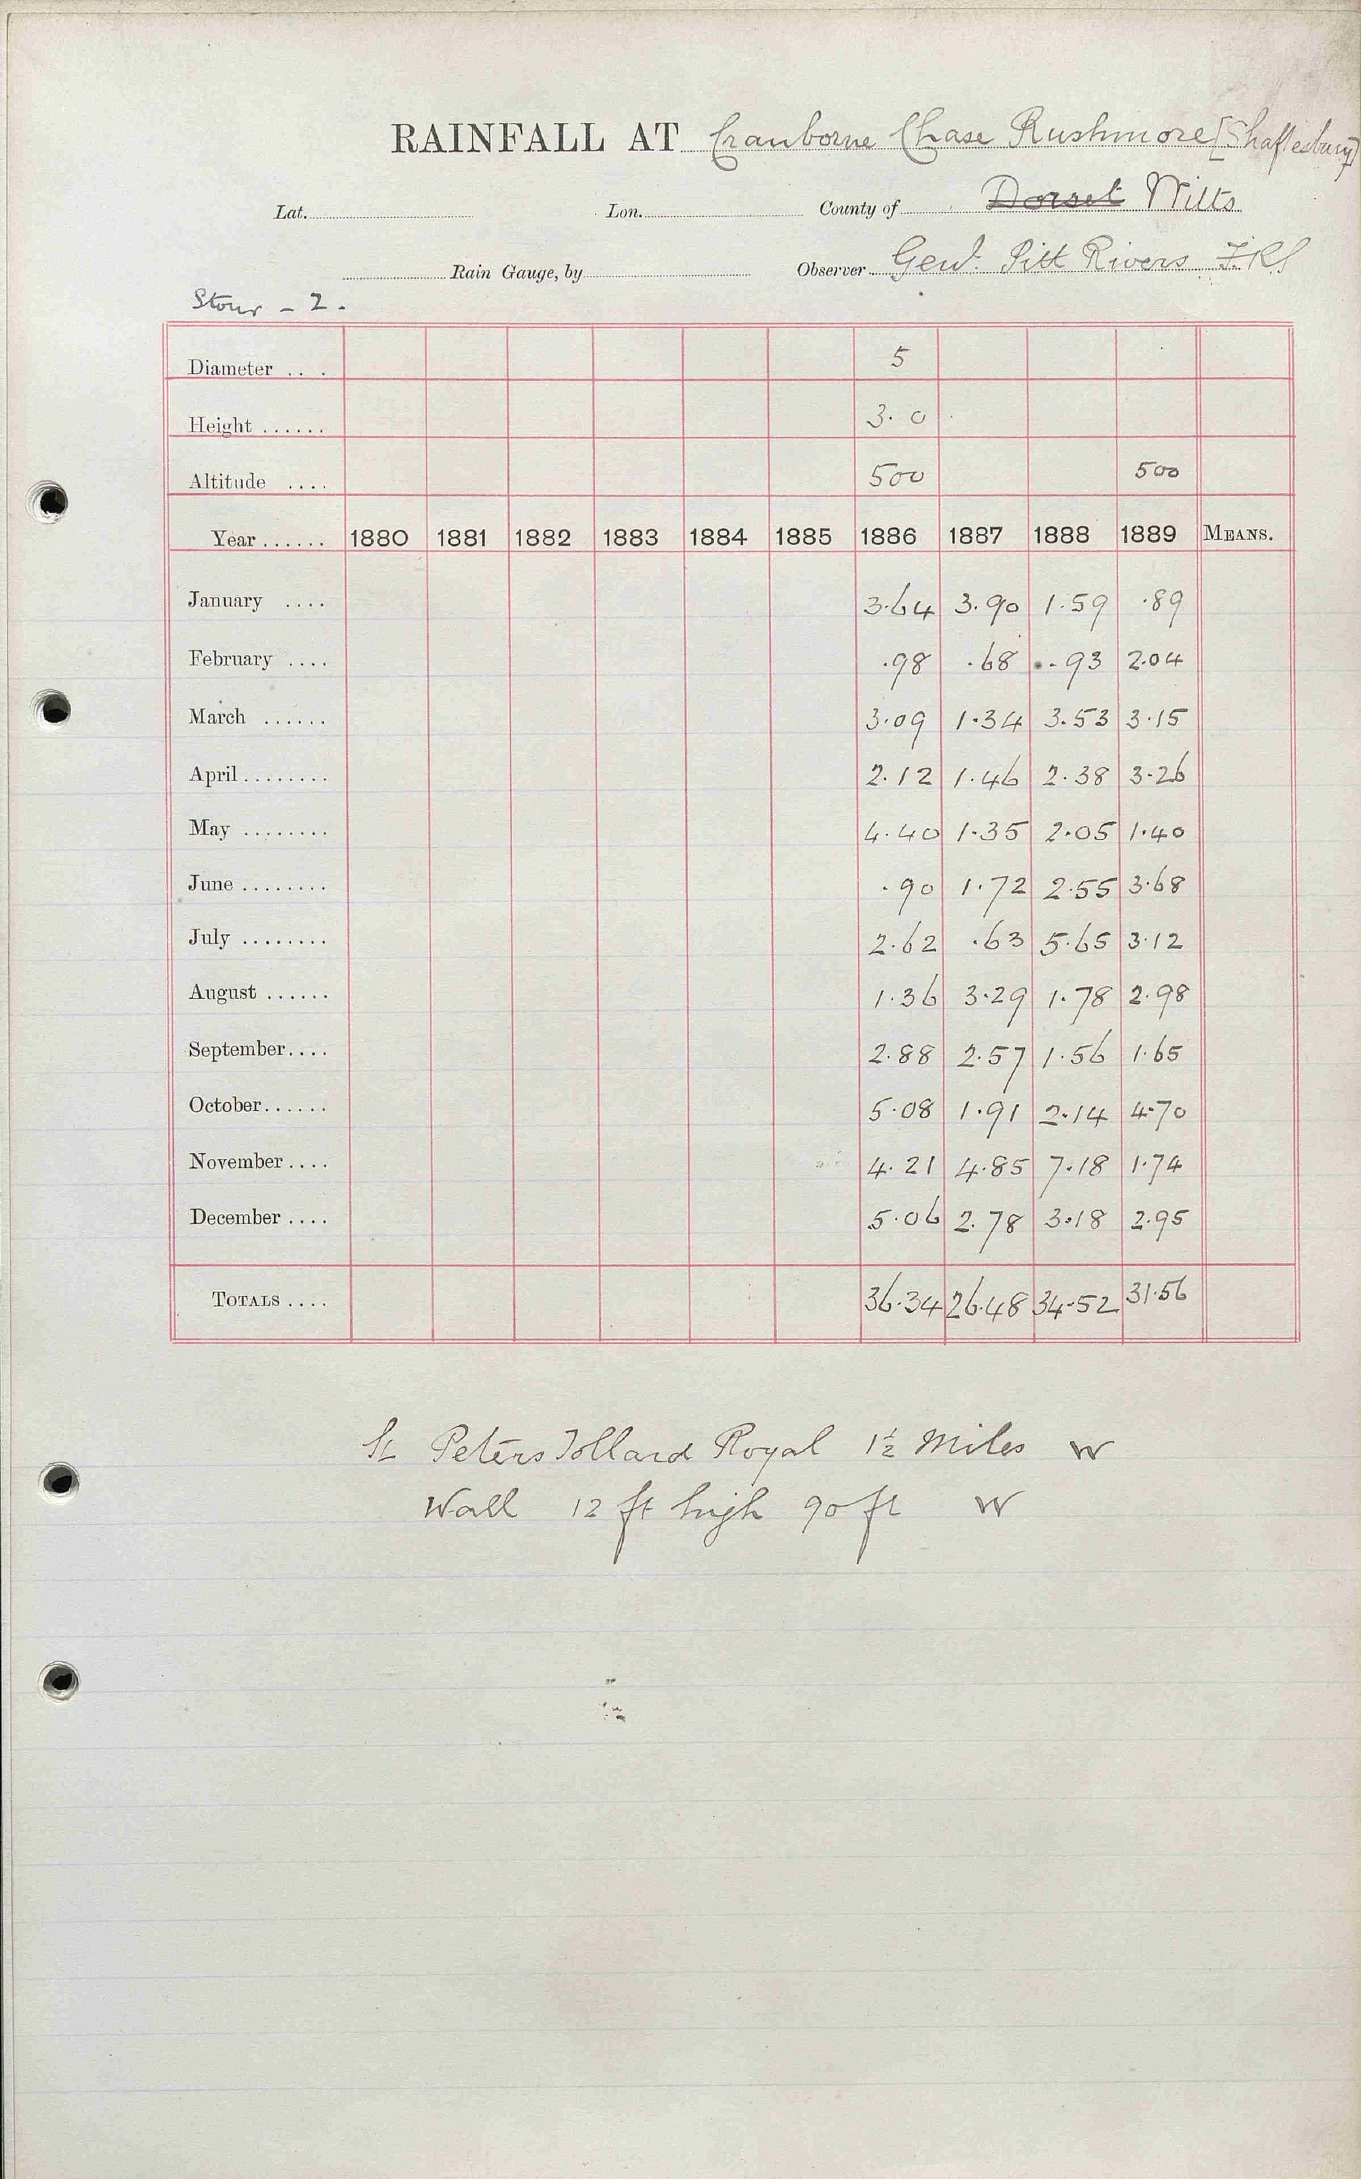 RAINFALL AT Cranborne Chase Rushmore [Shaftesbury]
Lat. Lon. County of Dorset Wilts
Rain Gauge, by Observer Genl. Pitt Rivers F.R.S
Stour - 2.
Diameter . . . 5
Height ...... 3. 0
Altitude .... 500 500
Year ...... 1880 1881 1882 1883 1884 1885 1886 1887 1888 1889 MEANS.
January .... 3.64 3.90 1.59 .89
February .... .98 .68 .93 2.04
March ...... 3.09 1.34 3.53 3.15
April ........ 2.12 1.46 2.38 3.26
May ........ 4.40 1.35 2.05 1.40
June ........ .90 1.72 2.55 3.68
July ........ 2.62 .63 5.65 3.12
August ...... 1.36 3.29 1.78 2.98
September.... 2.88 2.57 1.56 1.65
October...... 5.08 1.91 2.14 4.70
November .... 4.21 4.85 7.18 1.74
December .... 5.06 2.78 3.18 2.95
TOTALS .... 36.34 26.48 34.52 31.56
St Peters Tollard Royal 1½ Miles W
Wall 12 ft high 90 ft W